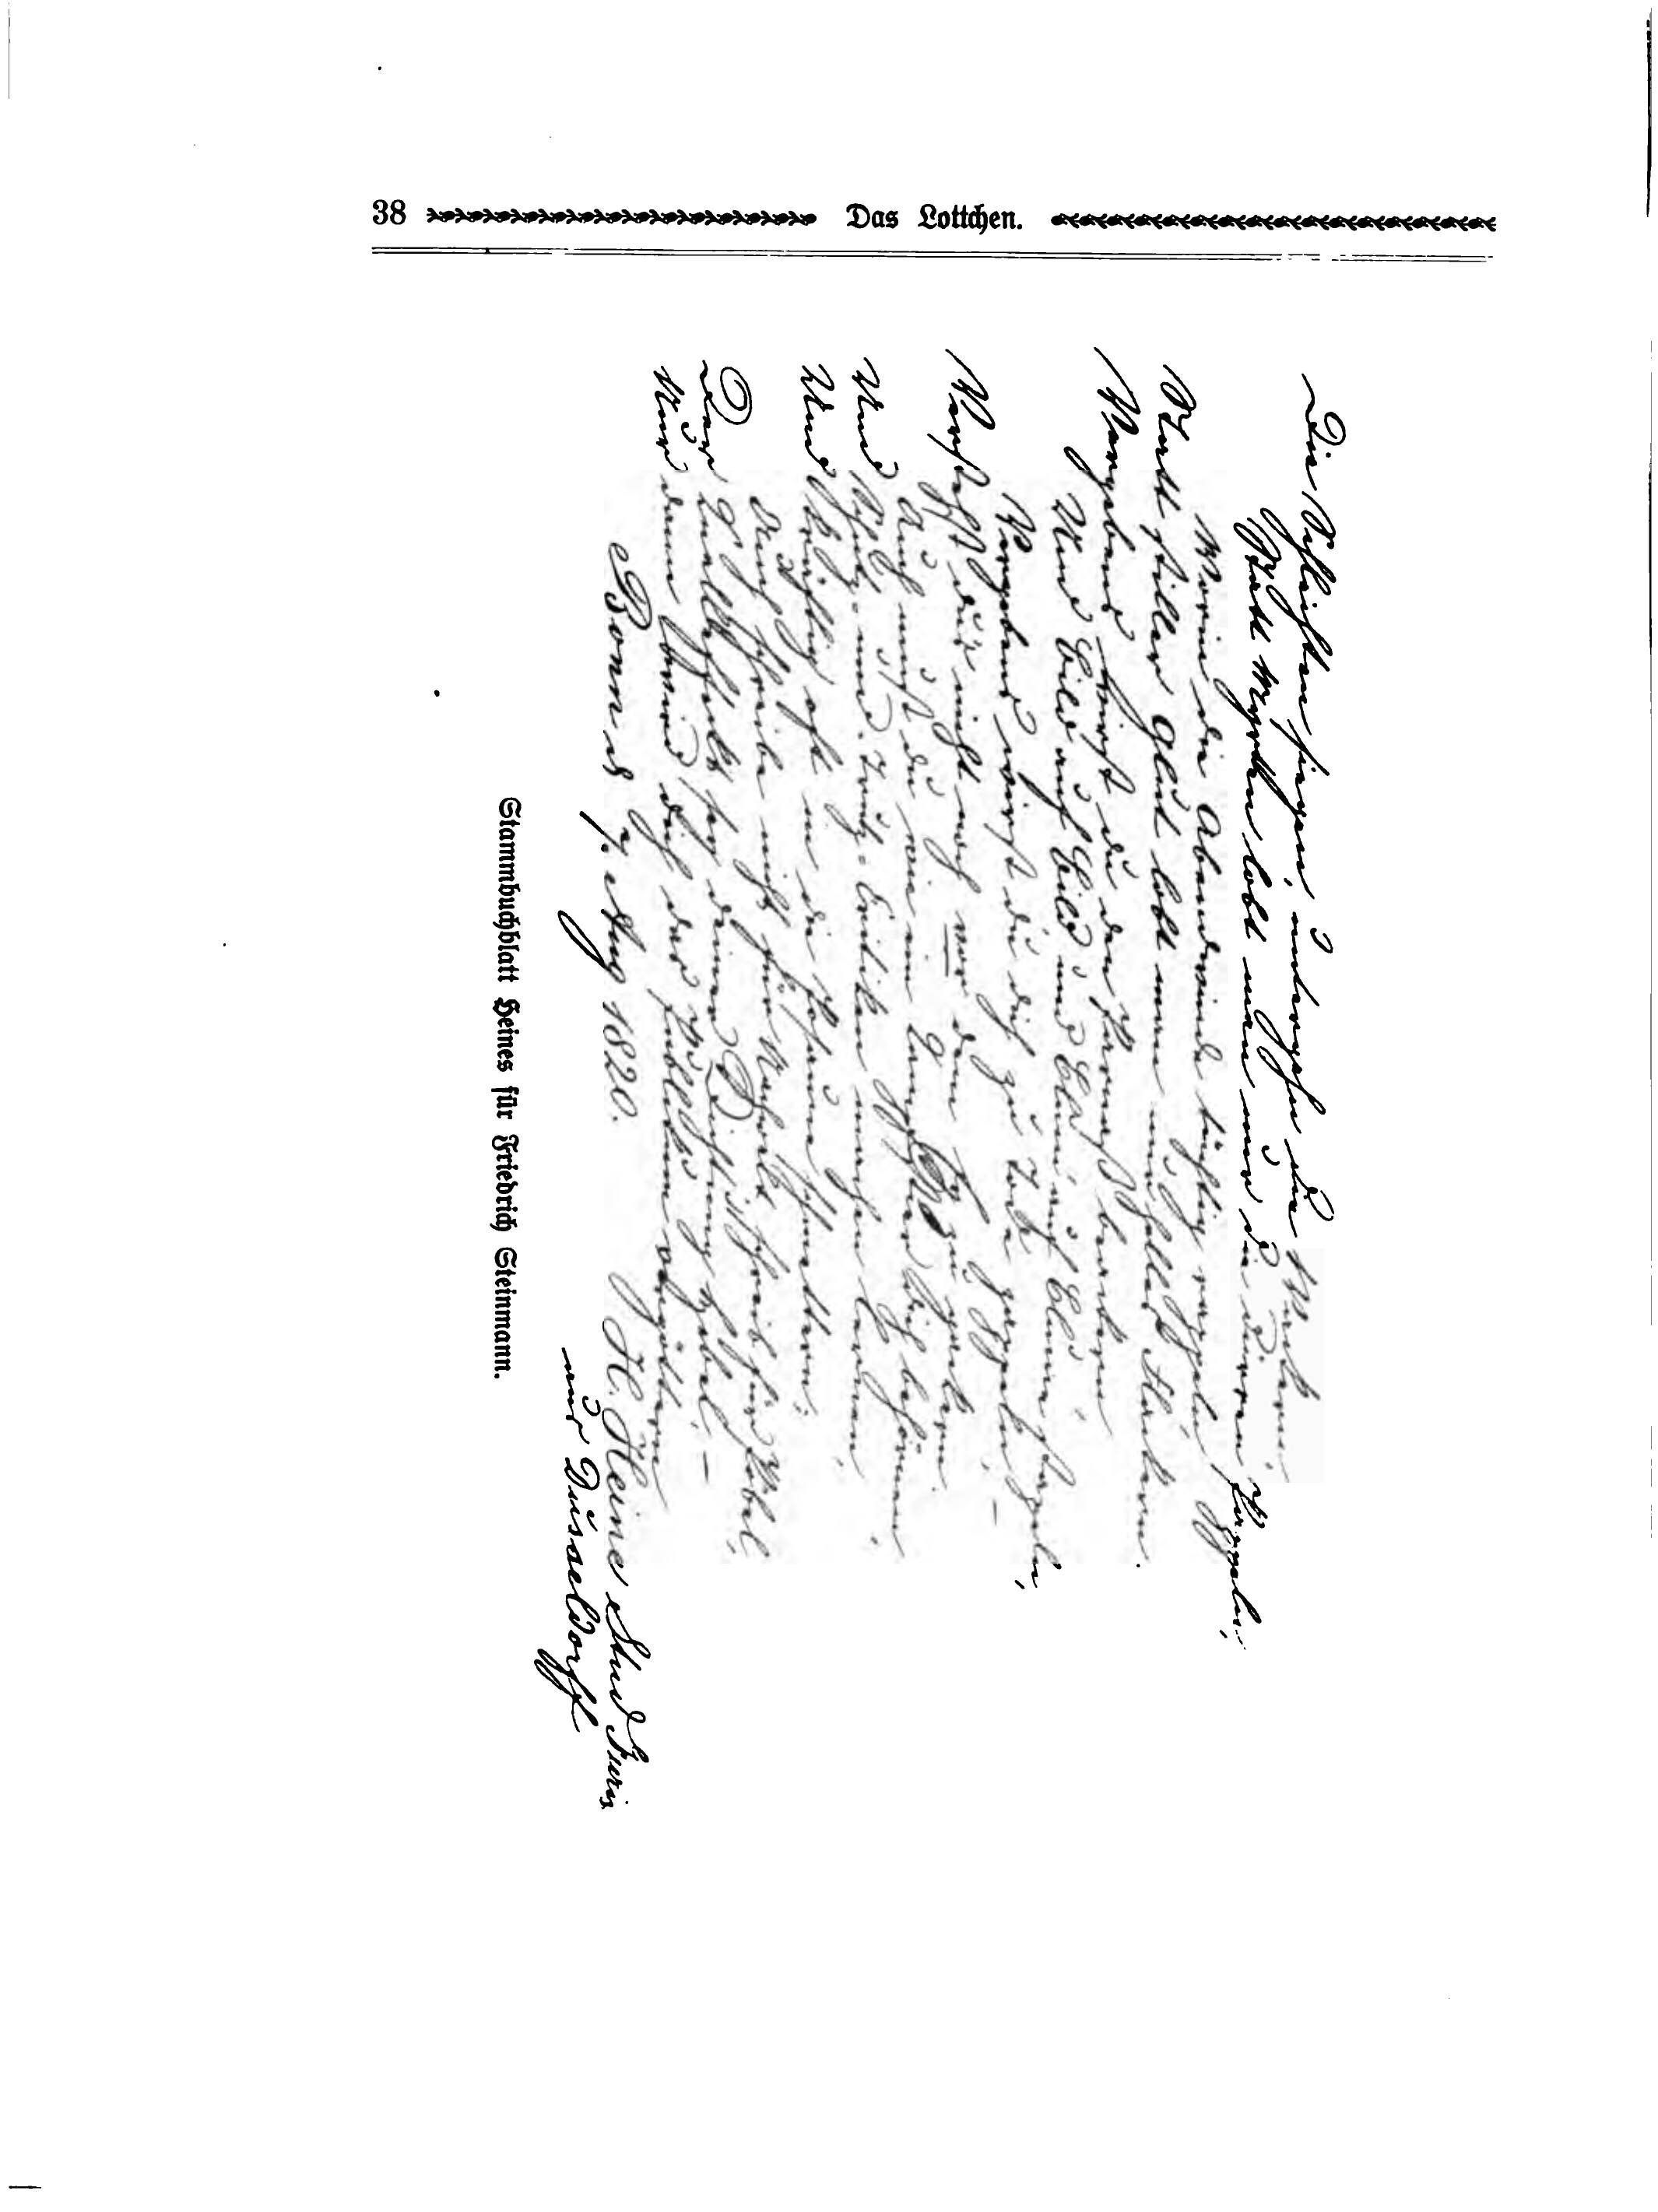 38 Das Lottchen.
Die Schlechten siegen, untergehn die Wackern,
Statt Myrthen lobt man nur die dürren Pappeln,
Worin die Abendwinde tüchtig rappeln,
Statt stiller Glut lobt man nur helles Flackern.
Vergebens wirst du den Parnaß beackern
Und Bild auf Bild und Blum' auf Blume stapeln,
Vergebens wirst du dich zu Tode zappeln, –
Verstehst du nicht noch vor dem Ey zu gackern.
Auch mußt du wie ein dich behörnen,
Und Schutz- und Trutz-Critiken machen lernen,
Und kräftig oft in die Posaune schmettern.
Auch schreibe nicht für Nachwelt, schreib für Pöbel,
Der Knalleffekt sey deiner Dichtung Hebel, –
Nur dann wird dich das Publikum vergöttern
Bonn d 7. Aug 1820. H. Heine Stud Juris
aus Düsseldorff
Stammbuchblatt Heines für Friedrich Steinmann.